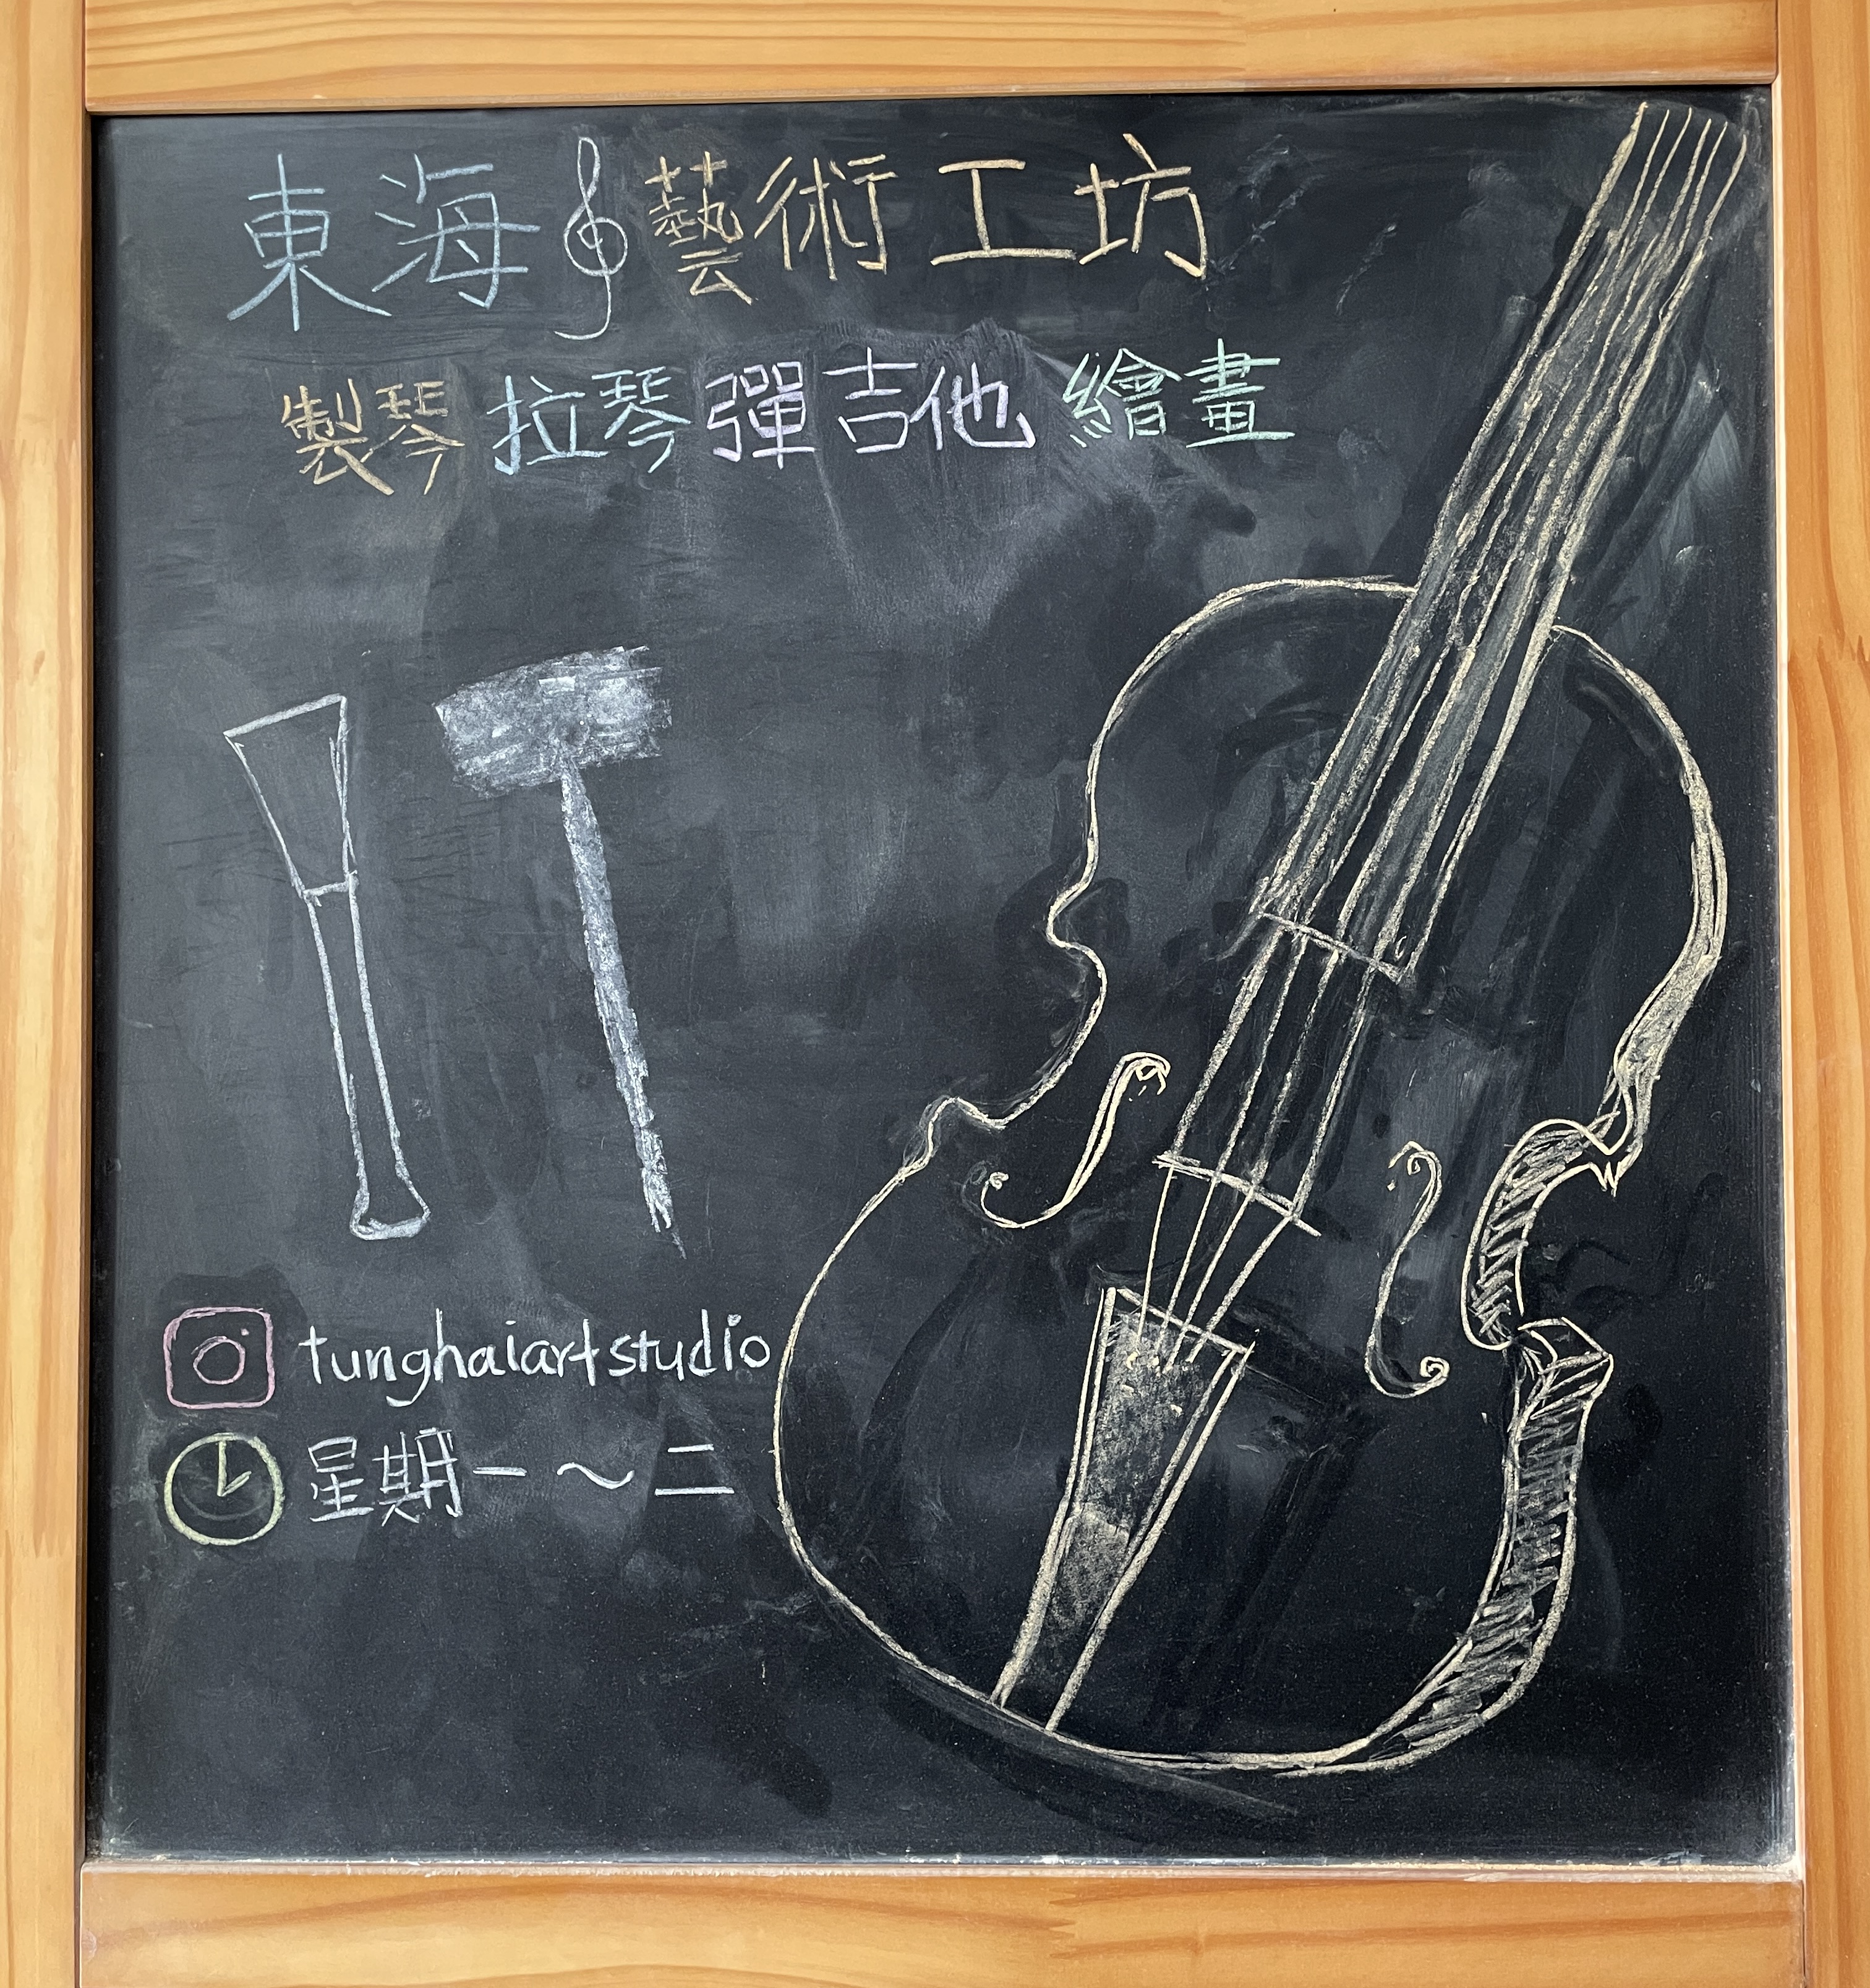 東海藝術工坊
製琴 拉琴 彈吉他 繪畫
tunghaiartstudio
星期一～二